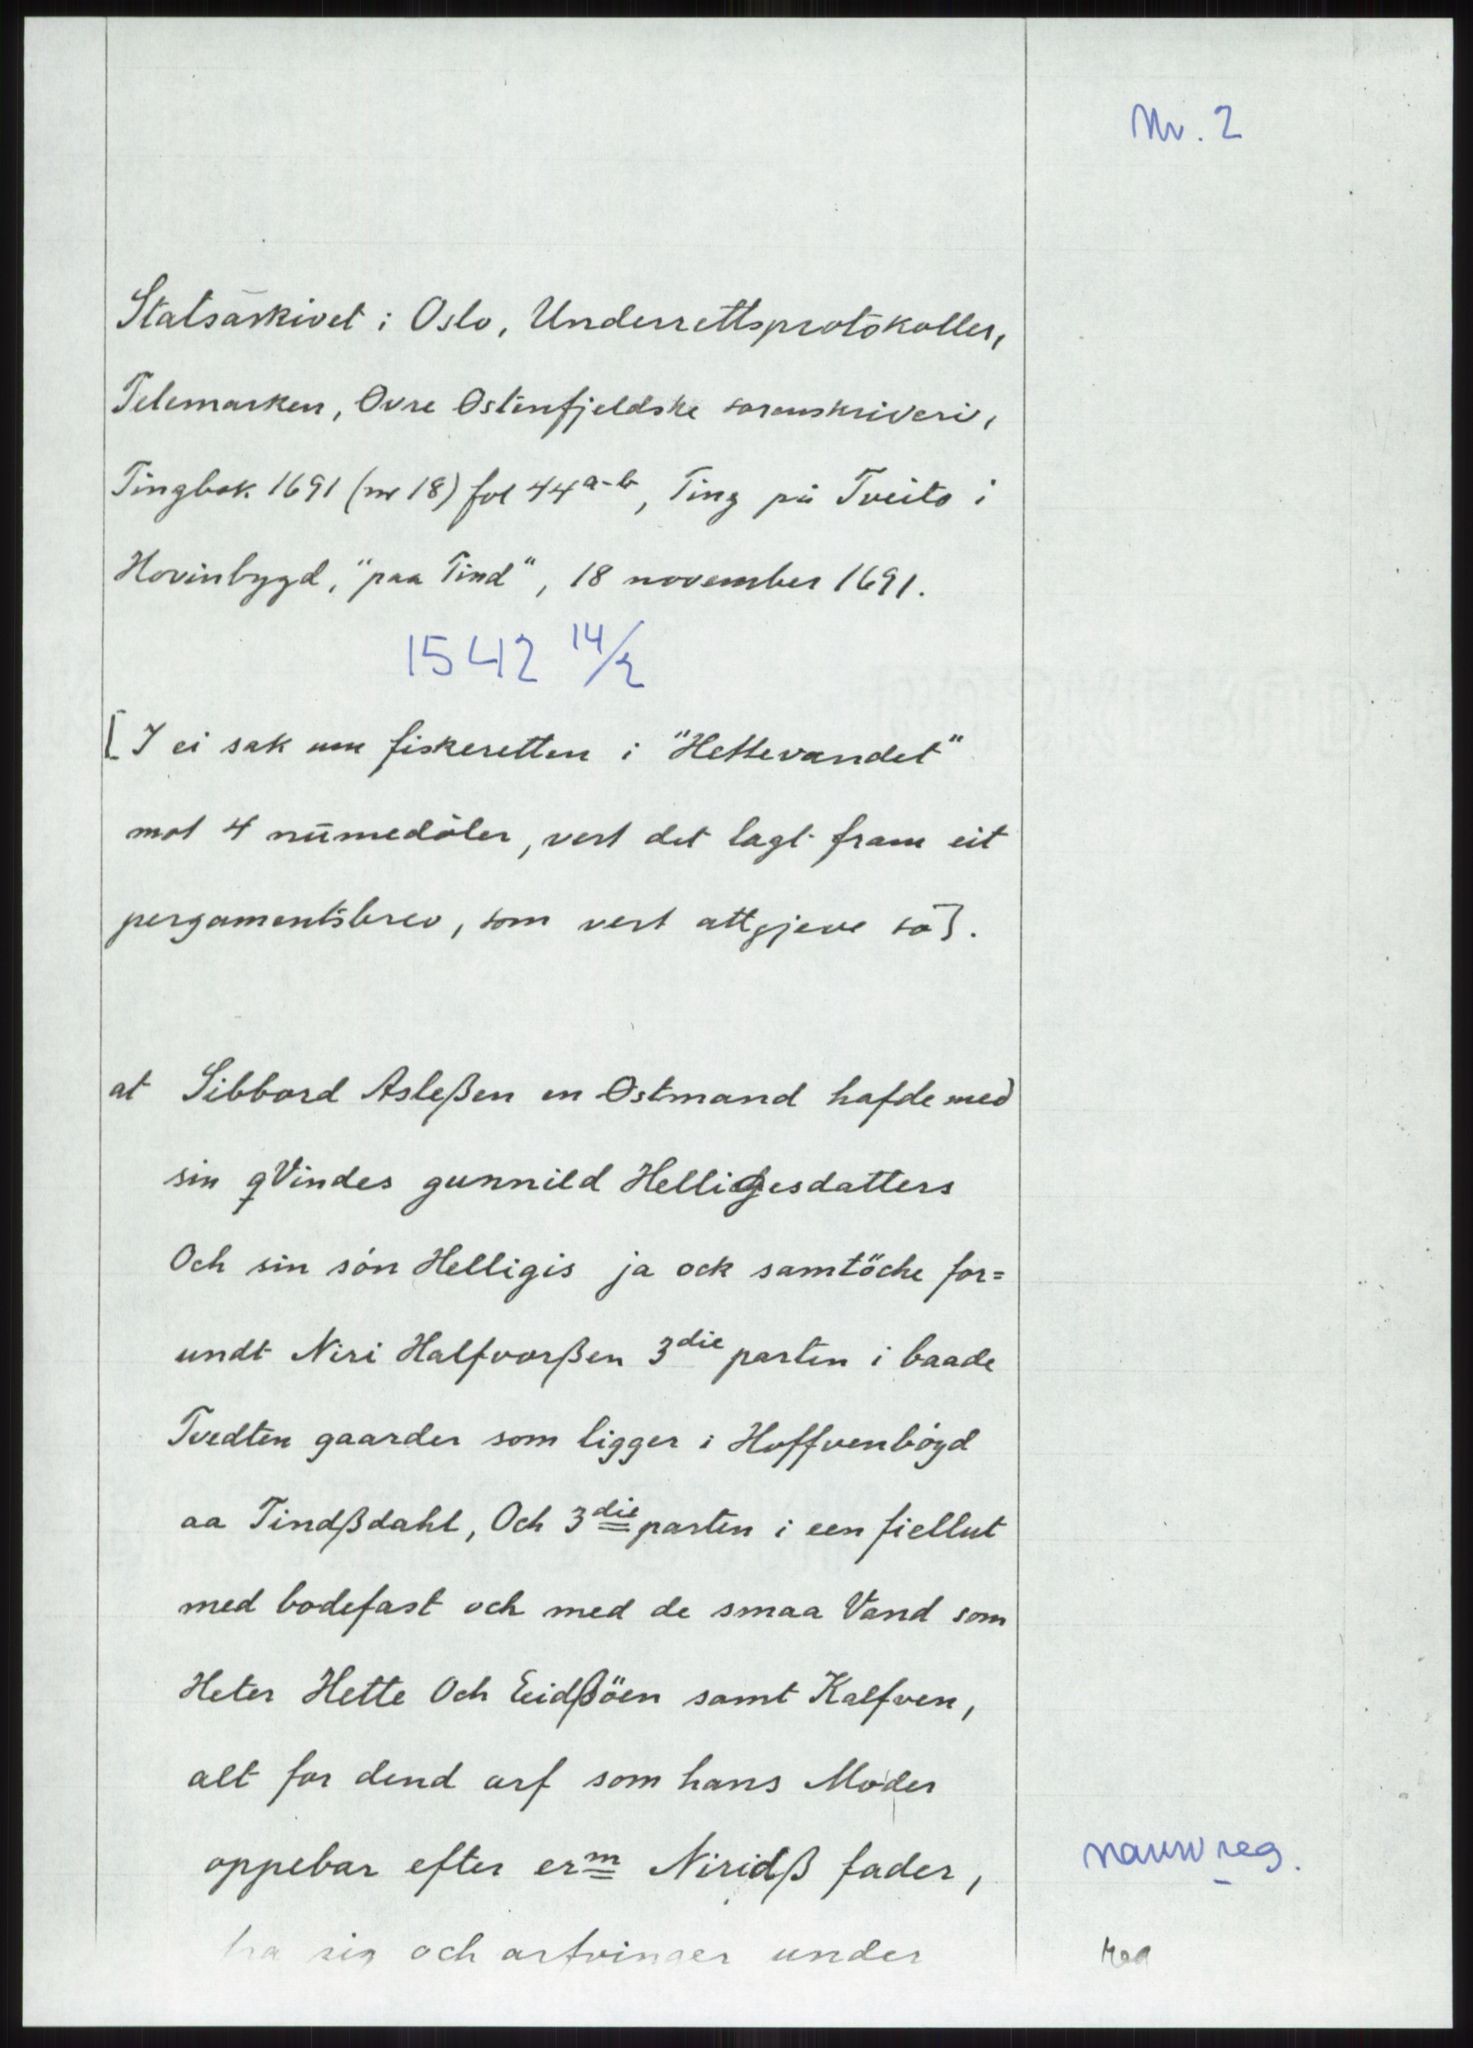 Nr. 2
Statsarkivet i Oslo, Underrettsprotokoller,
Telemarken, Øvre Østenfjeldske sorenskriveri,
Tingbok 1691 (nr 18) fol 44 a-b, Ting på Tveito i
Hovinbygd, "paa Tind", 18 november 1691.
1542 14/2
[I ei sak um fiskeretten i "Hettevandet"
mot 4 numedøler, vert det lagt fram eit
pergamentsbrev, som vert attgjeve so].
at Sibbord Asleßen en Østmand hafde med
sin qVindes gunnild Helligesdatters
Och sin són Helligis ja ock samtöche for=
undt Niri Halfvorßen 3die parten i baade
Tvedten gaarder som ligger i Hoffvenbögd
aa Tindßdahl, Och 3die parten i een fiellut
med bodefast och med de smaa Vand som
Heter Hette Och Eeidßöen samt Kalfven,
alt for dend arf som hans Moder
oppebar efter erm Niridß fader,
navnreg.
fra sig och arfvinger under
reg